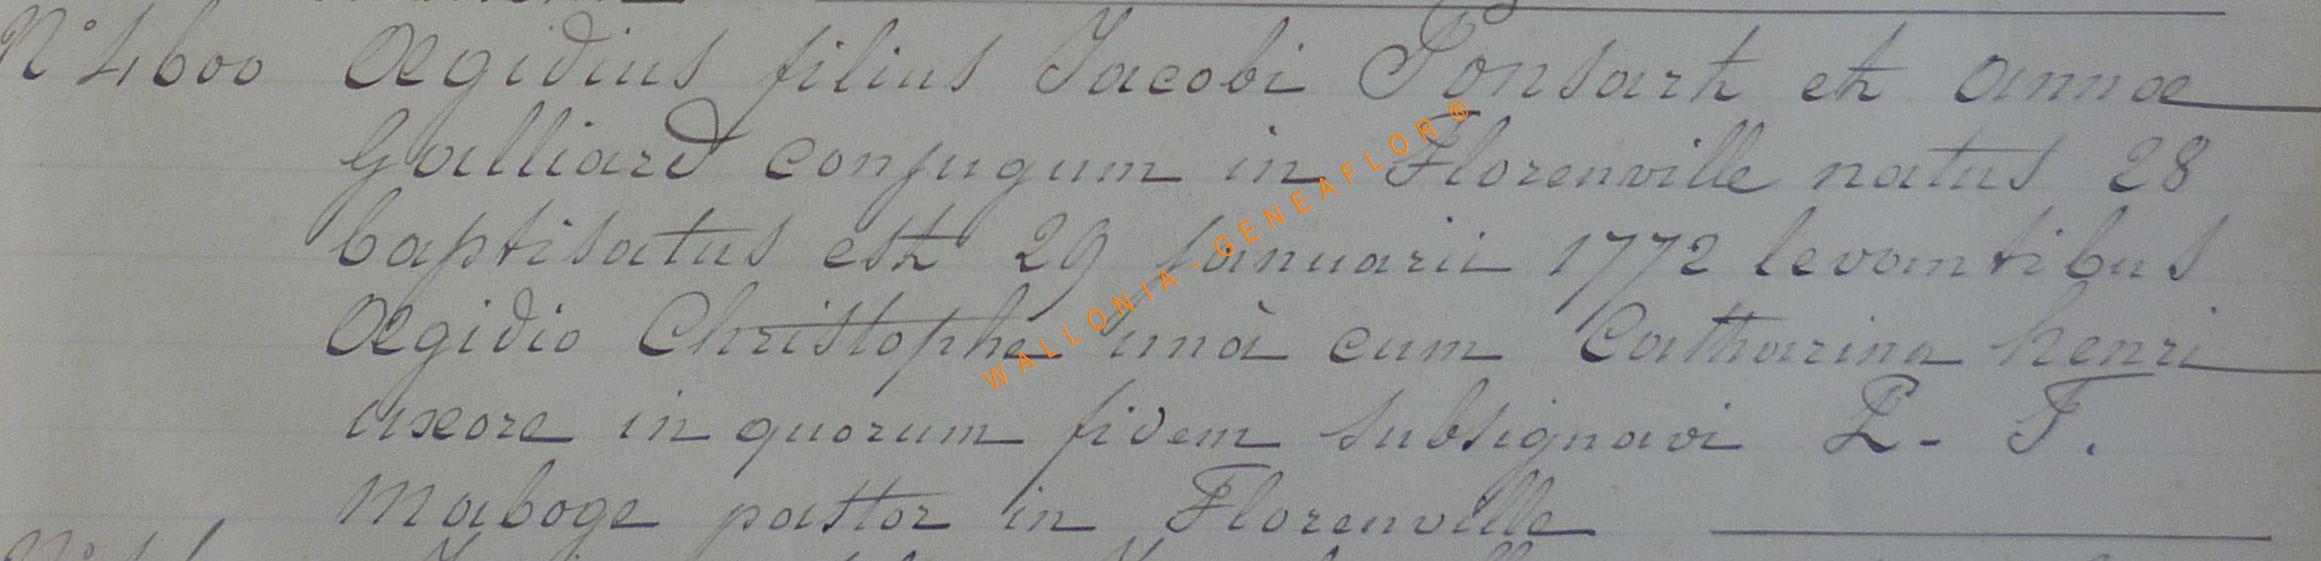 N° 4600 Œgidius filius Jacobi Ponsart et annœ
Galliard conjugum in Florenville natus 28
baptisatus est 29 januarii 1772 levantibus
Œgidio Christophe unà cum Catharina henri
uxore in quorum fidem subsignavi L. F.
Maboge pastor in Florenville
WALLONIA - GENEAFLOR ®